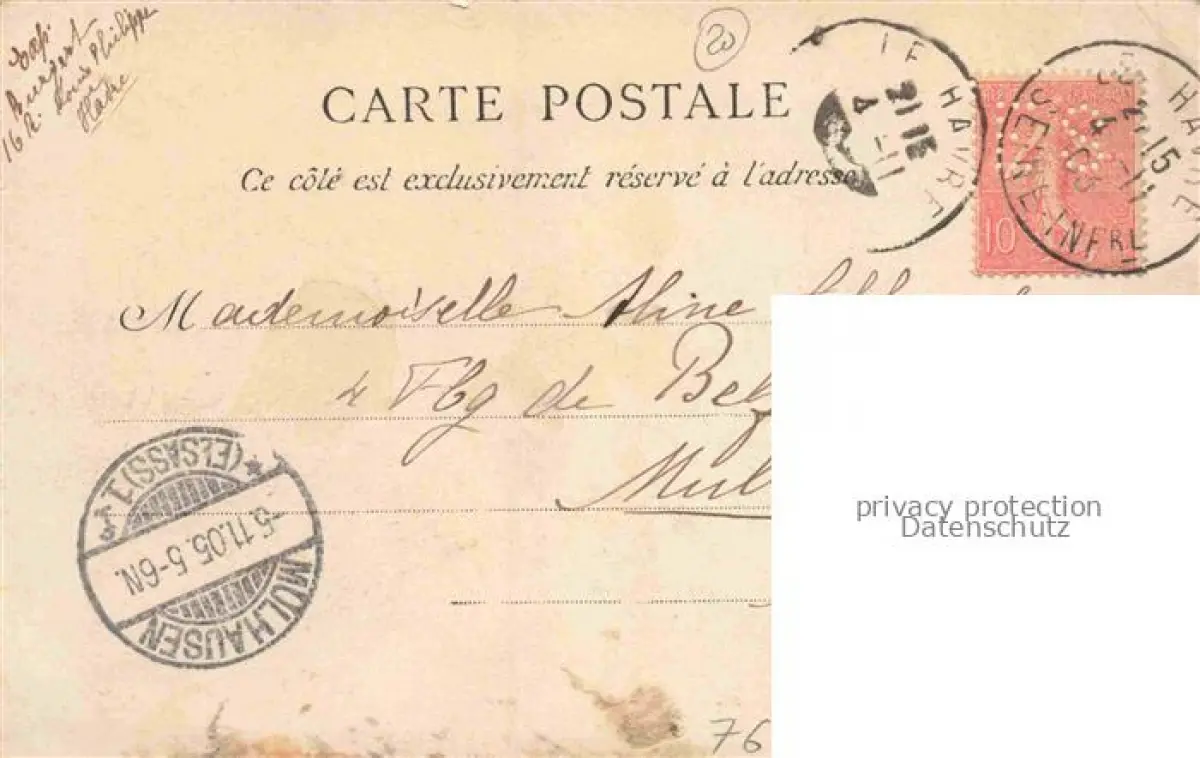 16 R. Louis Philippe
Havre
20
CARTE POSTALE
Ce côté est exclusivement réservé à l'adresse
LE HAVRE
21 15
4 -11
HAVRE
SEINE-INFRE
15
4 -11
10
Mademoiselle Aline
4 Fbg de Bef
Mul
MÜLHAUSEN
(ELSASS) 1
-5.11.05. 5-6N.
privacy protection
Datenschutz
76